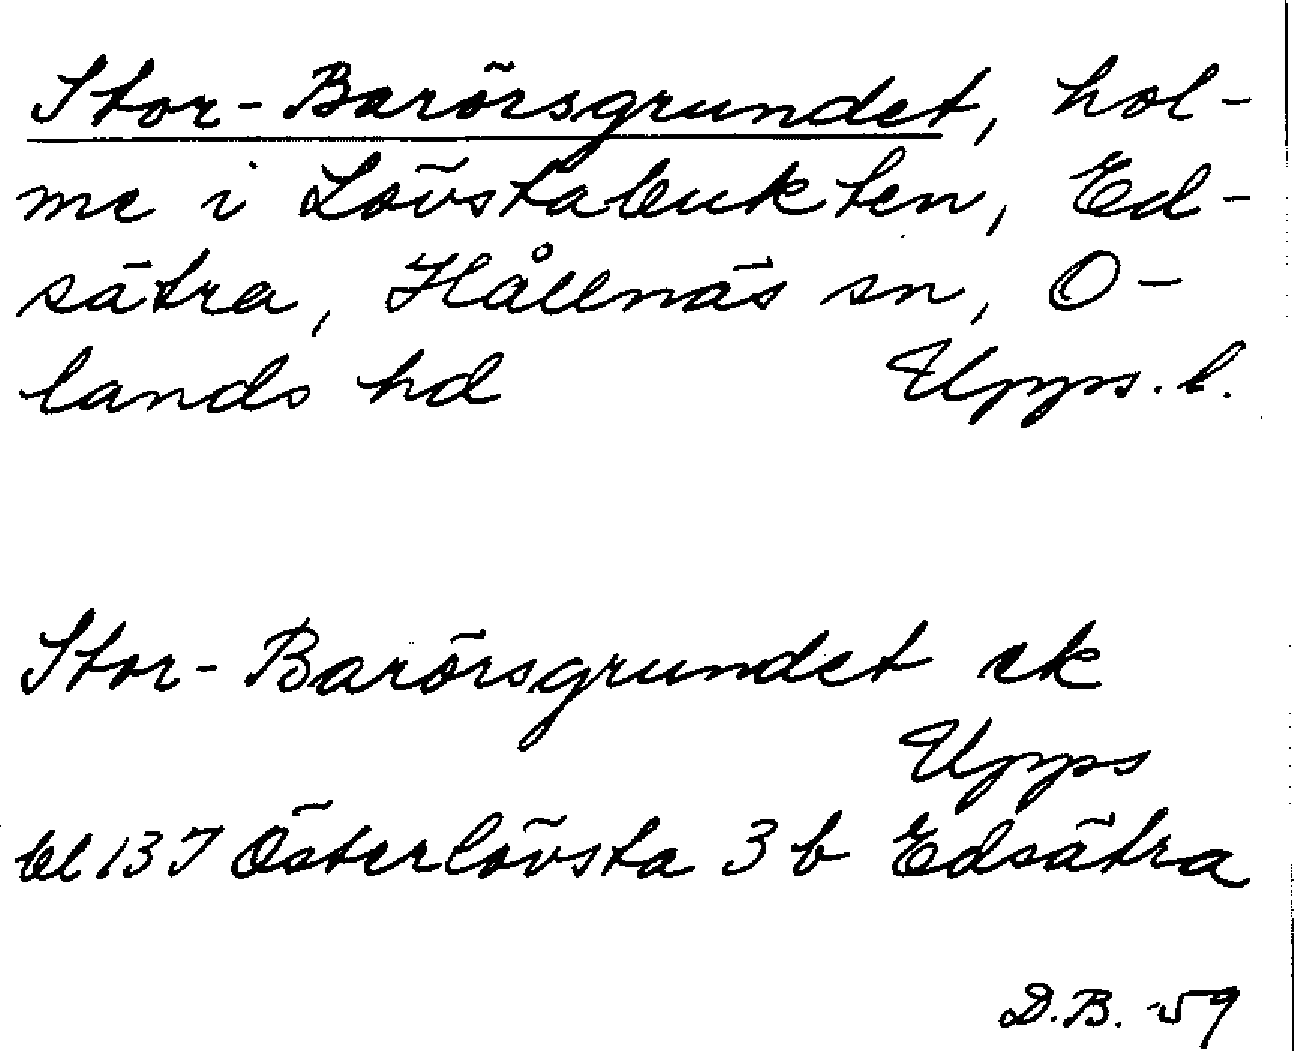 Stor-Barörsgrundet, hol-
me i Lövstabukten, Ed-
sätra, Hållnäs sn, O-
lands hd Upps. l.
Stor-Barörsgrundet ek
Upps
bl 137 Österlövsta 3 b Edsätra
D.B. -59